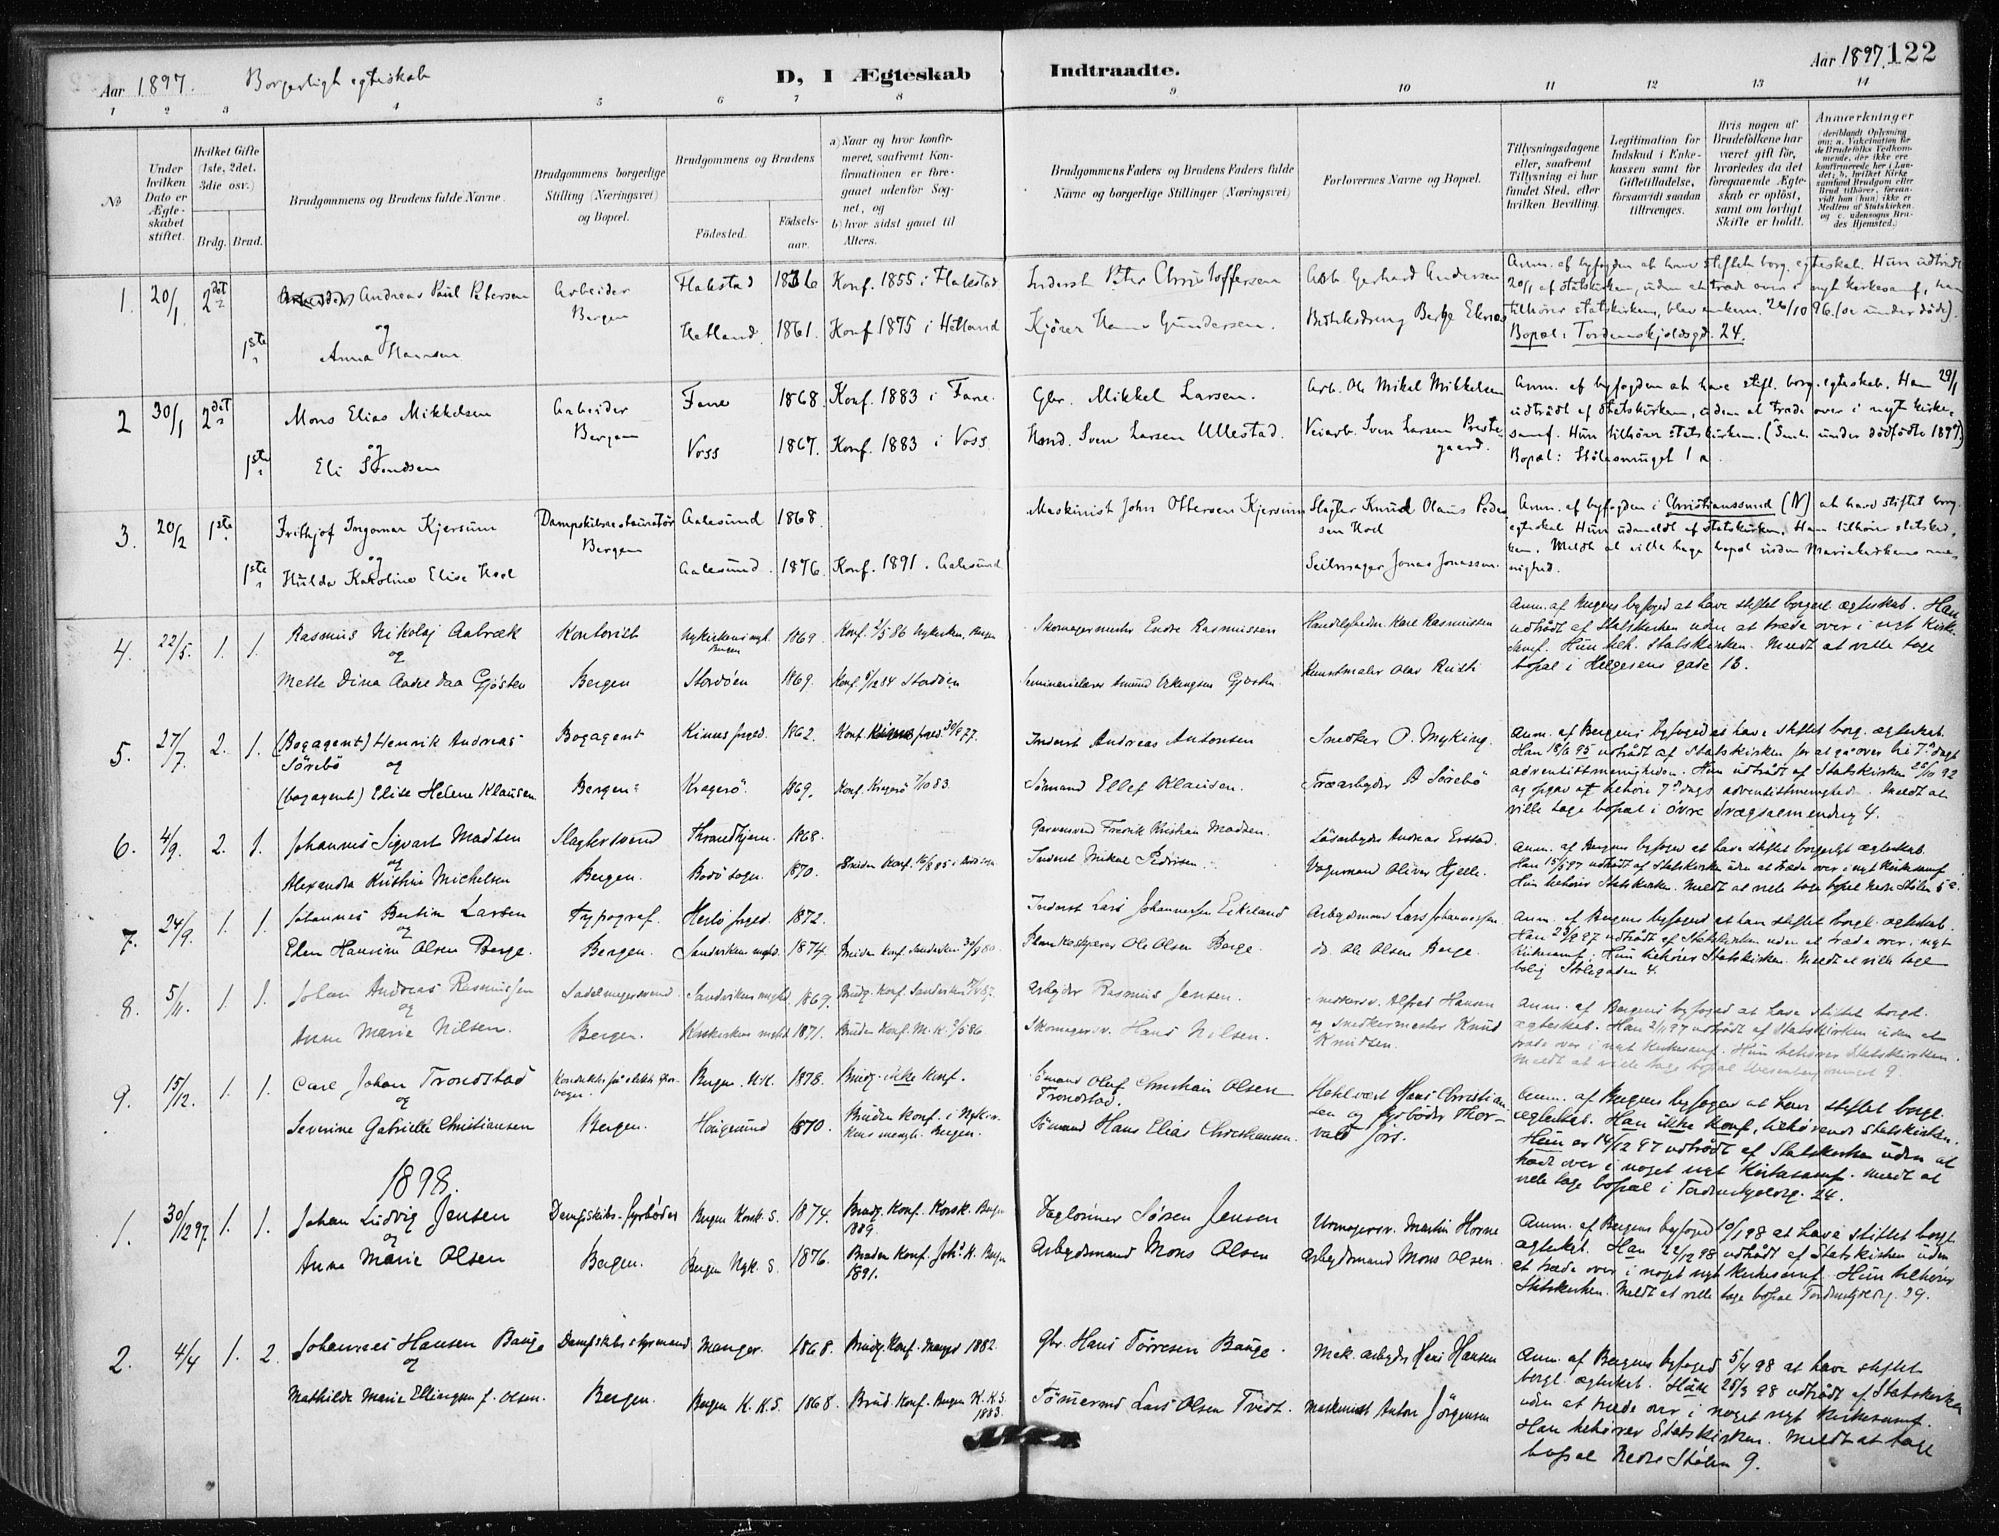 Aar 1897. Borgerligt egteskab D, I Ægteskab Indtraadte. Aar 1897. 122
1 2 3 4 5 6 7 8 9 10 11 12 13 14
No
Under hvilken Dato er Ægteskabet stiftet.
Hvilket Gifte (1ste, 2det, 3die osv.)
Brdg. Brud.
Brudgommens og Brudens fulde Navne.
Brudgommens borgerlige Stilling (Næringsvei) og Bopæl.
Brudgommens og Brudens
Fødested. Fødselsaar.
a) Naar og hvor konfirmeret, saafremt Konfirmationen er foregaaet udenfor Sognet, og
b) hvor sidst gaaet til Alters.
Brudgommens Faders og Brudens Faders fulde Navne og borgerlige Stillinger (Næringsvei)
Forlovernes Navne og Bopæl.
Tillysningsdagene eller, saafremt Tillysning ei har fundet Sted, efter hvilken Bevilling.
Legitimation for Indskud i Enkekassen samt for Giftetilladelse, forsaavidt saadan tiltrænges.
Hvis nogen af Brudefolkene har været gift før, hvorledes da det foregaaende Ægteskab er opløst, samt om lovligt Skifte er holdt.
Anmærkninger (deriblandt Oplysning om: a. Vakcination for de Brudefolks Vedkommende, der ikke ere konfirmerede her i Landet; b. hvilket Kirkesamfund Brudgom eller Brud tilhører, forsaavidt han (hun) ikke er Medlem af Statskirken, og c. udensogns Brudes Hjemsted.)
1. 20/1 2det Andreas Paul Petersen Arbeider Flakstad 1836 Konf. 1855 i Flakstad Inderst Peter Christoffersen Arb. Gerhard Andersen
og Bergen
1ste Anna Hansen Hetland 1861. Konf. 1875 i Hetland Kjører Hans Gundersen.
Anm. af byfogden at have stiftet borg. egteskab. Hun udtrådt
20/1 af statskirken, uden at træde over i nyt kirkesamf., han
tilhører statskirken, blev enkem. 26/10 96.
Bopæl: Tordenskjoldsgd. 24.
2 30/1 2det Mons Elias Mikkelsen Arbeider Fane 1868. Konf. 1883 i Fane. Gbr. Mikkel Larsen. Arb. Ole Mikel Mikkelsen
og Bergen
1ste Eli Svendsen Voss 1867. Konf. 1883 i Voss. Svend Larsen Ullestad. Veiarb. Sven Larsen Prestegaard.
Anm. af byfogden at have stift. borg. egteskab. Han 29/1
udtrådt af statskirken, uden at træde over i nyt kirkesamf. Hun tilhører statskirken.
Bopæl: Stølesmuget 1 a.
3. 20/2 1ste Frithjof Ingomar Kjersum Dampskibsrestauratør Aalesund 1868. Maskinist John Ottersen Kjersum Slagter Knud Olaus Pedersen Hoel
og Bergen
1ste Hulda Karoline Elise Hoel Aalesund. 1876. Konf. 1891. Aalesund Seilmager Jonas Jonassen.
Anm. af byfogden i Christianssund (N) at have stiftet borg.
egteskab. Hun udmeldt af statskirken. Han tilhører statskirken. Meldt at ville tage bopæl inden Mariakirkens menighed.
4. 22/5. 1. 1. Rasmus Nikolaj Aabræk Kontorist Nykirkens mgt. Bergen 1869. Konf. 86 Nykirken, Bergen Skomagermester Endre Rasmussen Karl Rasmussen
og
Mette Dina Aadredaa Gjøsten Bergen Stordøen 1869. Konf. 84 Stordøen Kunstmaler Olav Rusti
Anm. af Bergens byfoged at have stiftet borgerl. ægteskab. Han
udtrådt af Statskirken uden at træde over i nyt Kirkesamf. Hun tilh. Statskirken. Meldt at ville tage
bopæl i Helgesens gade 1B.
5. 27/7. 2. 1. (Bogagent) Henrik Andreas Sørebø Bogagent 1862. Inderst Andreas Antonsen Snedker O. Myking.
og
(bogagent) Elise Helene Klausen. Bergen Kragerø 1869. Konf. Kragerø 7/10 83. Sømand Ellef Klausen. Træarbeyder A Sørebø
Anm. af Bergens byfoged at have stiftet borg. ægteskab.
Han 18/6 95 udtrådt af Statskirken for at gå over til 7de dags
adventistmenigheden. Hun udtrådt af Statskirken 92
og opgav at tilhøre 7de dags adventistmenighed. Meldt at
ville tage bopæl i øvre dregsalmending 4.
6. 4/9. 2. 1. Johannes Sigvart Madsen Slagtersvend Throndhjem. 1868. Fredrik Kristian Madsen. Andreas Erstad.
og
Alexandra Kristine Michelsen Bergen. Bodø sogn. 1870. Inderst Mikal Pedersen. Vognmand Oliver Hjelle.
Anm. af Bergens byfoged at have stiftet borgerligt ægteskab.
udtrådt af Statskirken uden at træde over i nyt Kirkesamf.
Hun tilhører Statskirken. Meldt at ville tage bopæl Nedre Stølen
7. 24/9. 1. 1. Johannes Bertin Larsen Typograf. 1872. Inderst Lars Johannessen Eikeland Arbeydsmand Lars Johannessen
og
Elen Hansine Olsen Berge. Bergen. 1874. Ole Olsen Berge. do. Ole Olsen Berge.
Anm. af Bergens byfoged at have stiftet borgl. ægteskab.
udtrådt af Statskirken uden at træde over i nyt
Kirkesamf. Hun tilhører Statskirken. Meldt at ville tage
bolig Stølegaden 4.
8. 5/11. 1. 1. Johan Andreas Rasmussen Sadelmagersvend. Sandvikens mght 1869. Arbeyder Rasmus Jensen. Snedkersv. Alfred Hansen
og
Anne Marie Nilsen. Bergen. 1871. Skomagersv. Hans Nilsen. og Snedkermester Knud Knudsen.
Anm. af Bergens byfoged at have stiftet borgl.
ægteskab. Han 2/11 97 udtrådt af Statskirken uden at
træde over i nyt Kirkesamf. Hun tilhører Statskirken.
Meldt at ville tage bopæl 9.
9. 15/12. 1. 1. Carl Johan Trondstad Bergen. 1878. Brudg. ikke konf. Sømand Oluf Christian Olsen Trondstad. Hans Christiansen og fyrbøder Thorvald Jørs.
og
Severine Gabrielle Christiansen Bergen. Haugesund 1870. Bruden konf. i Nykirkens mengh. Bergen. Sømand Hans Elias Christiansen.
Anm. af Bergens byfoged at have stiftet borgl.
ægteskab. Han ikke konf., tilhørende Statskirken.
Hun er 14/12 97 udtrådt af Statskirken uden at
træde over i noget nyt Kirkesamf. Meldt at
ville tage bopæl i Tordenskjoldsg. 24.
1898.
1. 30/12 97. 1. 1. Johan Ludvig Jensen Dampskibs-fyrbøder Bergen Korsk. S. 1874. Brudg. Konf. Korsk. Bergen 1889. Taglønner Søren Jensen Urmagersv. Martin Horne
og
Anne Marie Olsen Bergen. Bergen Nyk. S. 1876. Bruden konf. Joh. K. Bergen 1891. Arbeydsmand Mons Olsen Arbeydsmand Mons Olsen.
Anm. af Bergens byfoged 10/1 98 at have stiftet borgl.
ægteskab. Han 22/12 98 udtrådt af Statskirken uden
at træde over i noget nyt Kirkesamf. Hun tilhører
Statskirken. Meldt at ville tage bopæl Tordenskjoldsg. 39.
2. 4/4 1. 2. Johannes Hansen Bauge Dampskibsstyrmand Manger. 1868. Brudg. Konf. Manger 1882. Gbr. Hans Tørresen Bauge. Mek. arbeyder Hansen
og
Mathilde Marie Ellingsen f. Olsen. Bergen. Bergen K.K.S. 1868. Brud. Konf. Bergen K.K.S. 1883. Tømmermd Lars Olsen Tvedt. Maskinist Anton Jørgensen
Anm. af Bergens byfoged 5/4 98 at have stiftet
borgl. ægteskab. 98 udtrådt af Statskirken
uden at træde over i noget nyt Kirkesamf.
Han tilhører Statskirken. Meldt at tage
bopæl Nedre Stølen 9.